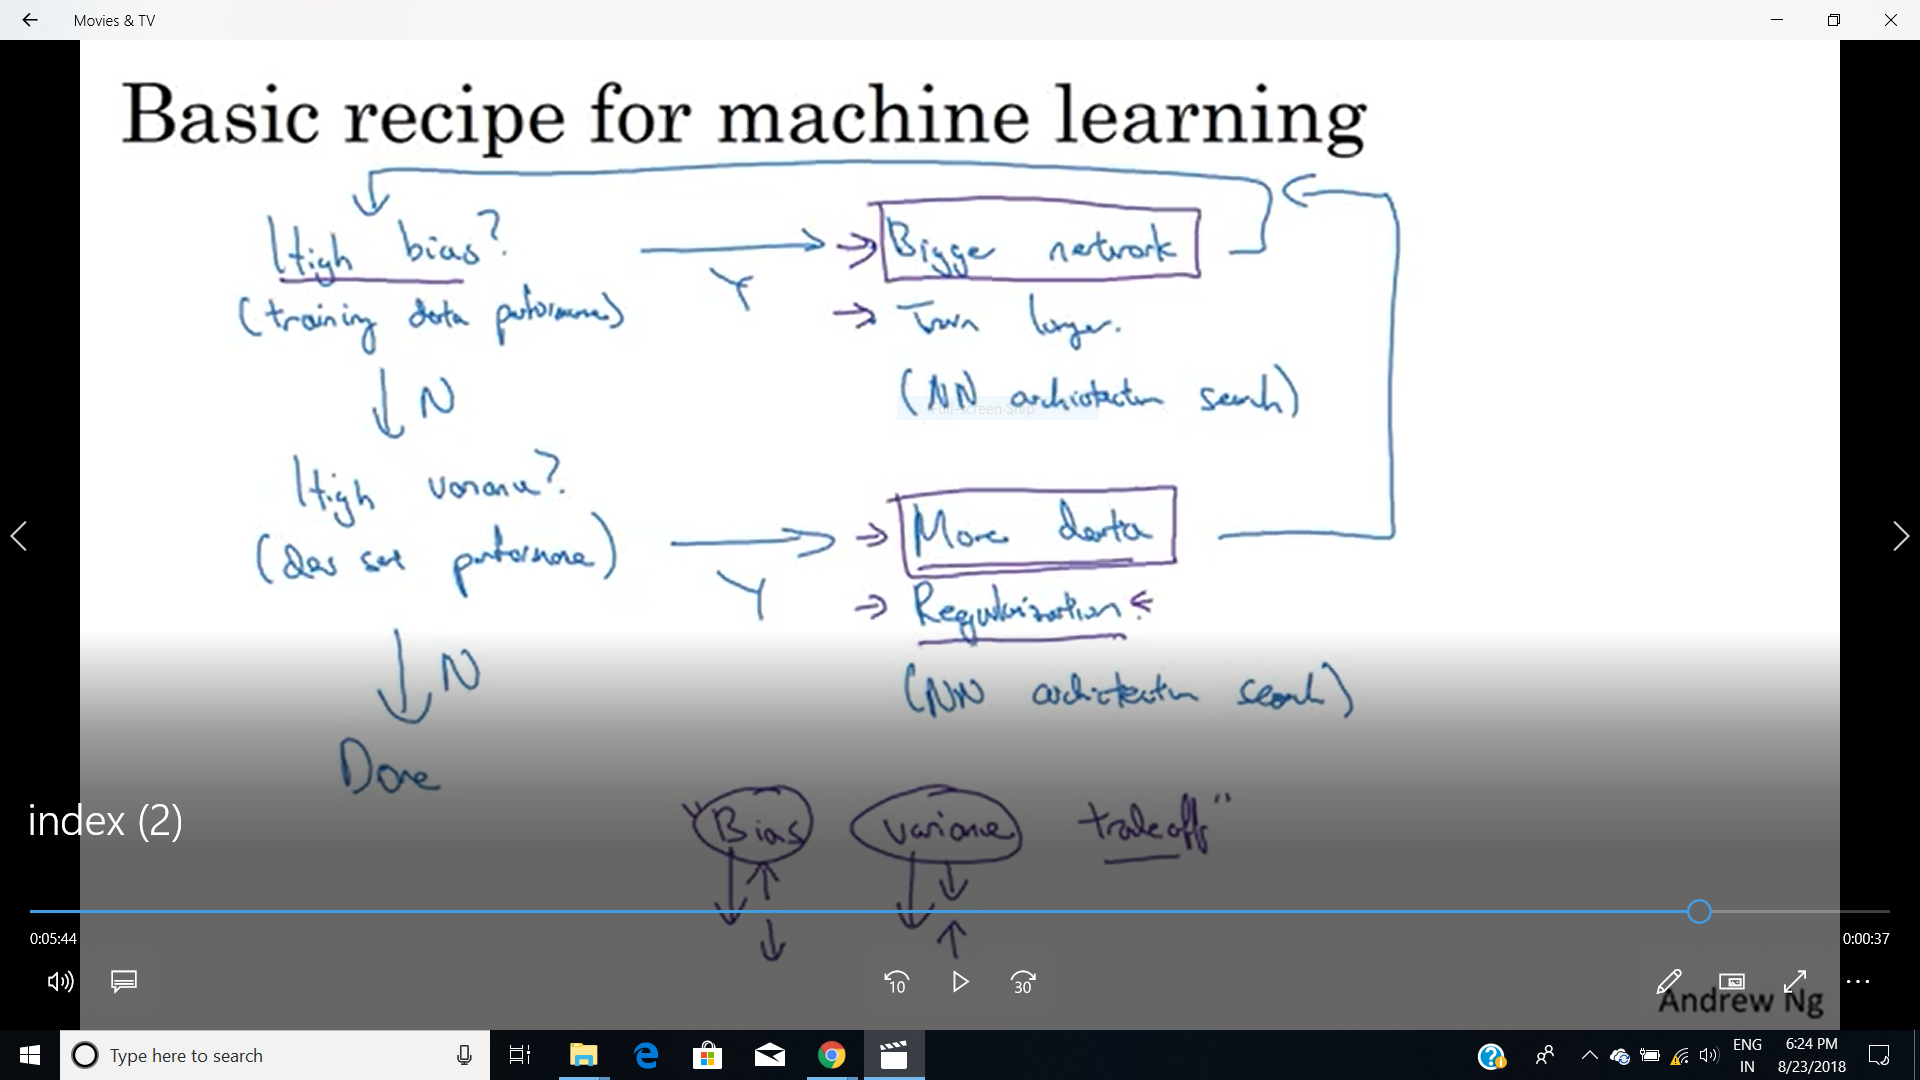 Movies & TV
Basic recipe for machine learning
High bias?
Y
Bigger network
(training data performance)
Train longer.
N
(NN architecture search)
Full-screen Snip
High variance?
(dev set performance)
Y
More data
Regularization
N
(NN architecture search)
Done
index (2)
"Bias variance tradeoff"
0:05:44
0:00:37
10
30
Andrew Ng
Type here to search
ENG
IN
6:24 PM
8/23/2018